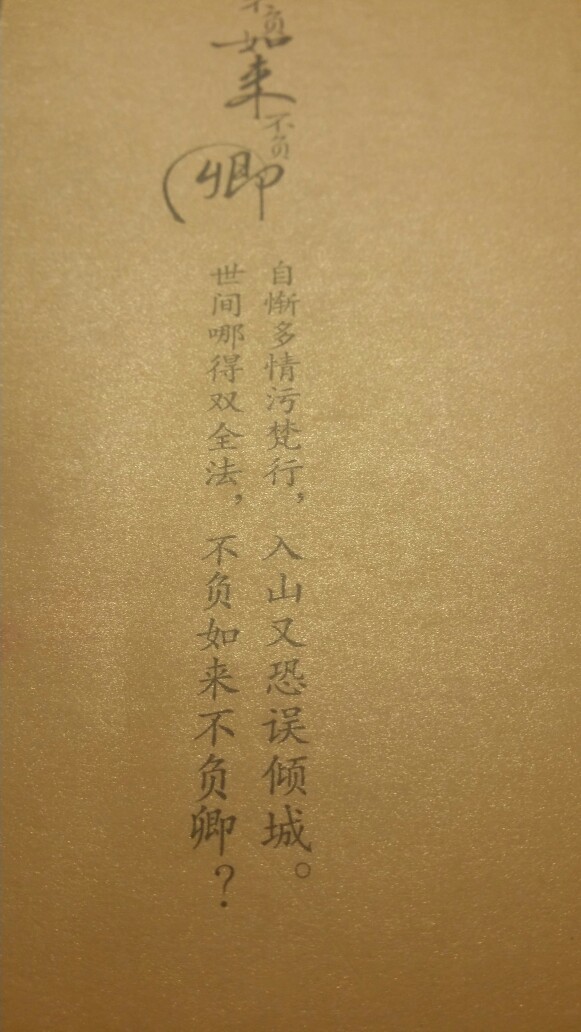 不负如来不负卿
自惭多情污梵行，入山又恐误倾城。
世间哪得双全法，不负如来不负卿？